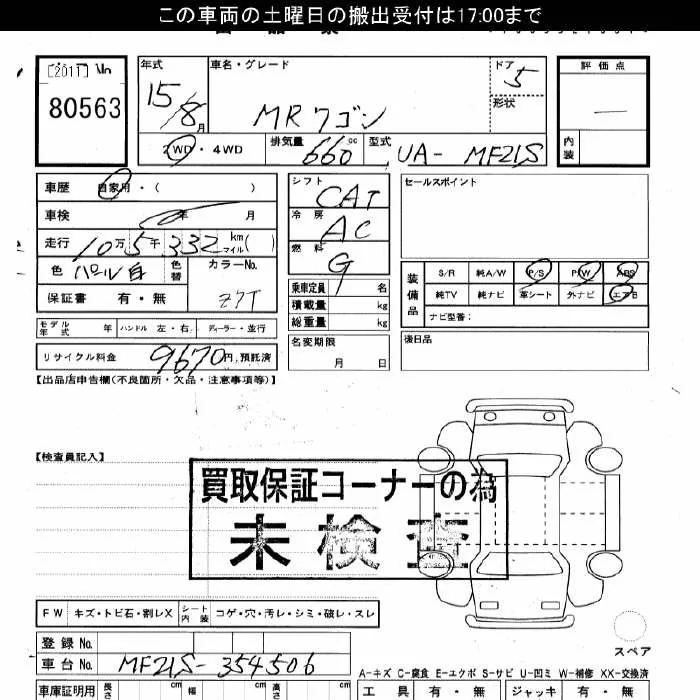 この車両の土曜日の搬出受付は17:00まで
[2011] No
80563
年式 15/8月
車名・グレード MRワゴン
ドア 5
形状
評価点 —
内装
2WD・4WD
排気量 660 cc
型式 UA- MF21S
車歴 自家用・( )
車検 年 月
走行 10万5千332 km マイル( )
色 パール白 色替
カラーNo. Z7T
保証書 有・無
シフト CAT
冷房 AC
燃料 G
乗車定員 名
積載量 kg
総重量 kg
セールスポイント
装備品
S/R 純A/W P/S P/W ABS
純TV 純ナビ 革シート 外ナビ エアB
ナビ型番:
モデル年式 年 ハンドル 左・右 ディーラー・並行
リサイクル料金 9670円,預託済
名変期限
月 日
後日品
【出品店申告欄(不良箇所・欠品・注意事項等)】
【検査員記入】
買取保証コーナーの為
未検査
FW キズ・トビ石・割レX シート内装 コゲ・穴・汚レ・シミ・破レ・スレ
スペア
登録No.
車台No. MF21S-354506
A-キズ C-腐食 E-エクボ S-サビ U-凹ミ W-補修 XX-交換済
車庫証明用 長さ cm 幅 cm 高さ cm
工具 有・無 ジャッキ 有・無